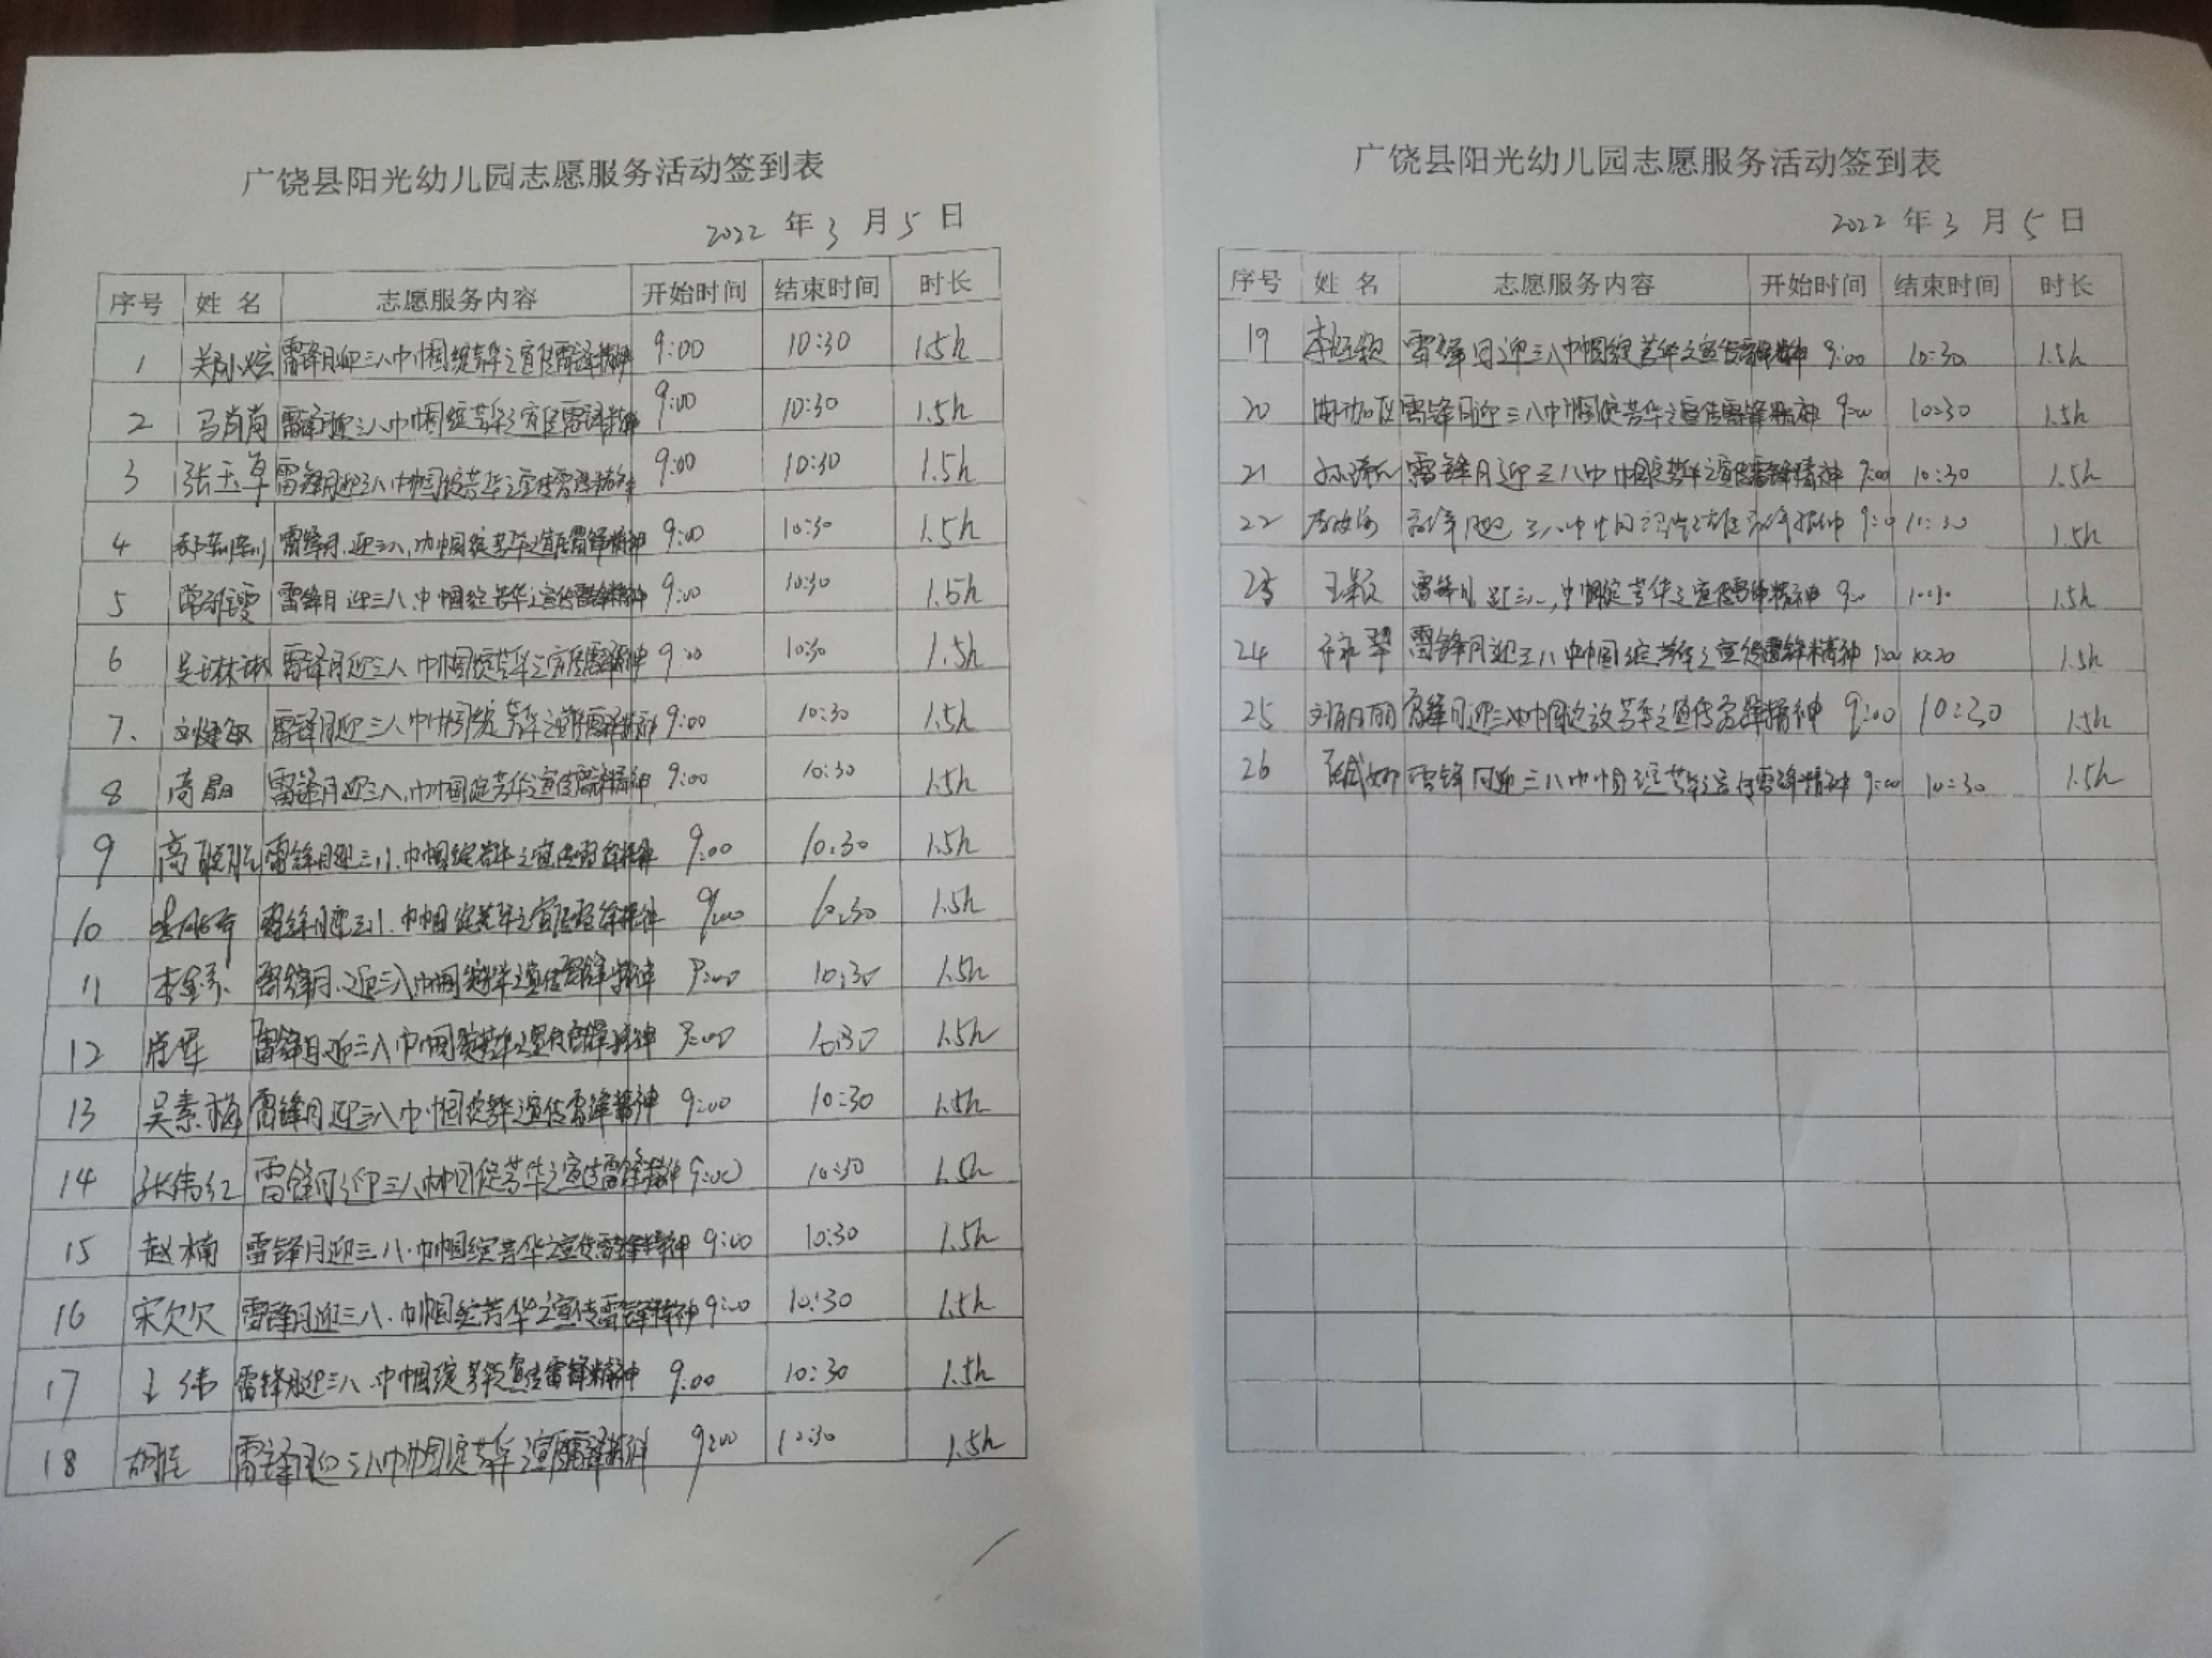 广饶县阳光幼儿园志愿服务活动签到表
2022 年 3 月 5 日
序号 姓名 志愿服务内容 开始时间 结束时间 时长
1 雷锋月迎三八巾帼绽芳华之宣传雷锋精神 9:00 10:30 1.5h
2 马肖肖 雷锋月迎三八巾帼绽芳华之宣传雷锋精神 9:00 10:30 1.5h
3 张玉卓 雷锋月迎三八巾帼绽芳华之宣传雷锋精神 9:00 10:30 1.5h
4 雷锋月,迎三八,巾帼绽芳华之宣传雷锋精神 9:00 10:30 1.5h
5 雷锋月迎三八,巾帼绽芳华之宣传雷锋精神 9:00 10:30 1.5h
6 吴琳琳 雷锋月迎三八巾帼绽芳华之宣传雷锋精神 9:00 10:30 1.5h
7. 雷锋月迎三八巾帼绽芳华之宣传雷锋精神 9:00 10:30 1.5h
8 高晶 雷锋月迎三八,巾帼绽芳华之宣传雷锋精神 9:00 10:30 1.5h
9 高 雷锋月迎三八.巾帼绽芳华之宣传雷锋精神 9:00 10:30 1.5h
10 雷锋月迎三八.巾帼绽芳华之宣传雷锋精神 9:00 10:30 1.5h
11 雷锋月.迎三八巾帼绽芳华之宣传雷锋精神 9:00 10:30 1.5h
12 雷锋月迎三八巾帼绽芳华之宣传雷锋精神 9:00 10:30 1.5h
13 吴素梅 雷锋月迎三八巾帼绽芳华之宣传雷锋精神 9:00 10:30 1.5h
14 张伟红 雷锋月迎三八巾帼绽芳华之宣传雷锋精神 9:00 10:30 1.5h
15 赵楠 雷锋月迎三八.巾帼绽芳华之宣传雷锋精神 9:00 10:30 1.5h
16 宋欠欠 雷锋月迎三八.巾帼绽芳华之宣传雷锋精神 9:00 10:30 1.5h
17 王伟 雷锋月迎三八.巾帼绽芳华之宣传雷锋精神 9:00 10:30 1.5h
18 雷锋月迎三八巾帼绽芳华之宣传雷锋精神 9:00 10:30 1.5h
广饶县阳光幼儿园志愿服务活动签到表
2022 年 3 月 5 日
序号 姓名 志愿服务内容 开始时间 结束时间 时长
19 雷锋月迎三八巾帼绽芳华之宣传雷锋精神 9:00 10:30 1.5h
20 雷锋月迎三八巾帼绽芳华之宣传雷锋精神 9:00 10:30 1.5h
21 雷锋月迎三八巾帼绽芳华之宣传雷锋精神 9:00 10:30 1.5h
22 1.5h
23 王颖 雷锋月迎三八,巾帼绽芳华之宣传雷锋精神 1.5h
24 雷锋月迎三八巾帼绽芳华之宣传雷锋精神 9:00 10:30 1.5h
25 雷锋月迎三八巾帼绽放芳华之宣传雷锋精神 9:00 10:30 1.5h
26 雷锋月迎三八巾帼绽芳华之宣传雷锋精神 9:00 10:30 1.5h